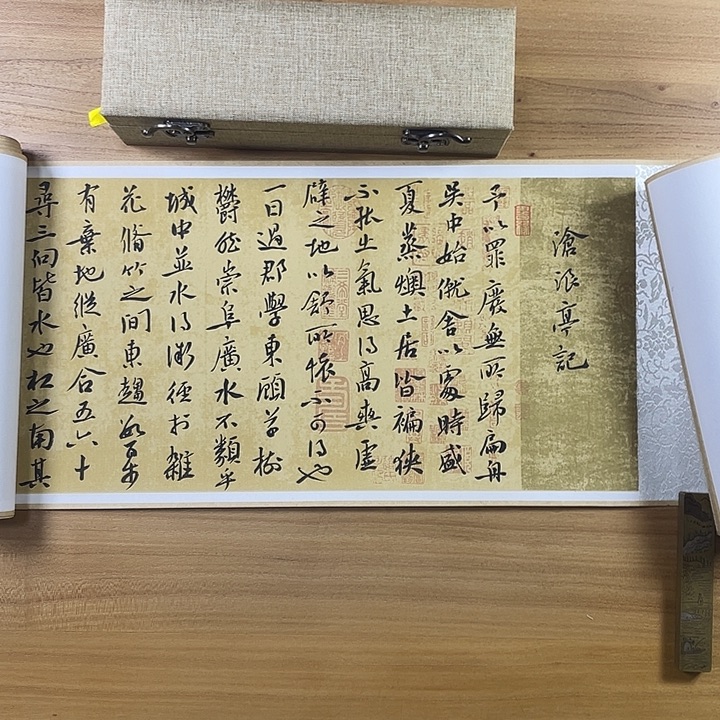 滄浪亭記
予以罪廢無所歸扁舟
吳中始僦舍以處時盛
夏蒸燠土居皆褊狹
不能出氣思得高爽虛
辟之地以舒所懷不可得也
一日過郡學東顧草樹
鬱然崇阜廣水不類乎
城中並水得微徑於雜
花脩竹之間東趨數百步
有棄地縱廣合五六十
尋三向皆水也杠之南其